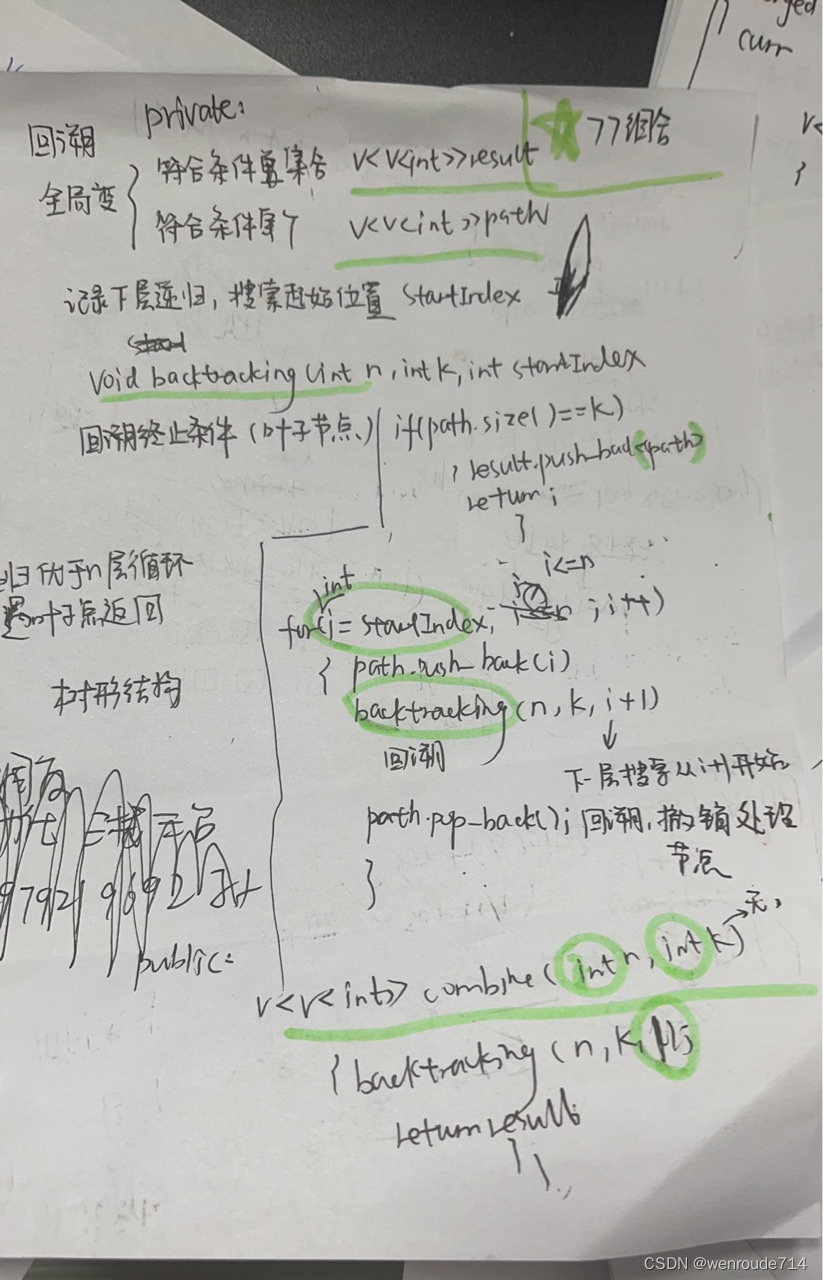 curr
private:
☆ 77组合
回溯
全局变
符合条件集合 v<v<int>>result
符合条件 v<v<int>>path
记录下层递归,搜索起始位置 startIndex
void backtracking(int n,int k,int startIndex
回溯终止条件(叶子节点) if(path.size()==k)
{ result.push_back(path)
return;
}
归优于n层循环
叶子点返回
树形结构
int
i<=n
for(i=startIndex; ;i++)
{ path.push_back(i)
backtracking(n,k,i+1)
回溯
下一层搜索从i+1开始
path.pop_back();回溯,撤销处理
节点
}
public:
v<v<int>> combine(int n,int k)→无;
{ backtracking(n,k,1);
return result;
}
CSDN @wenroude714